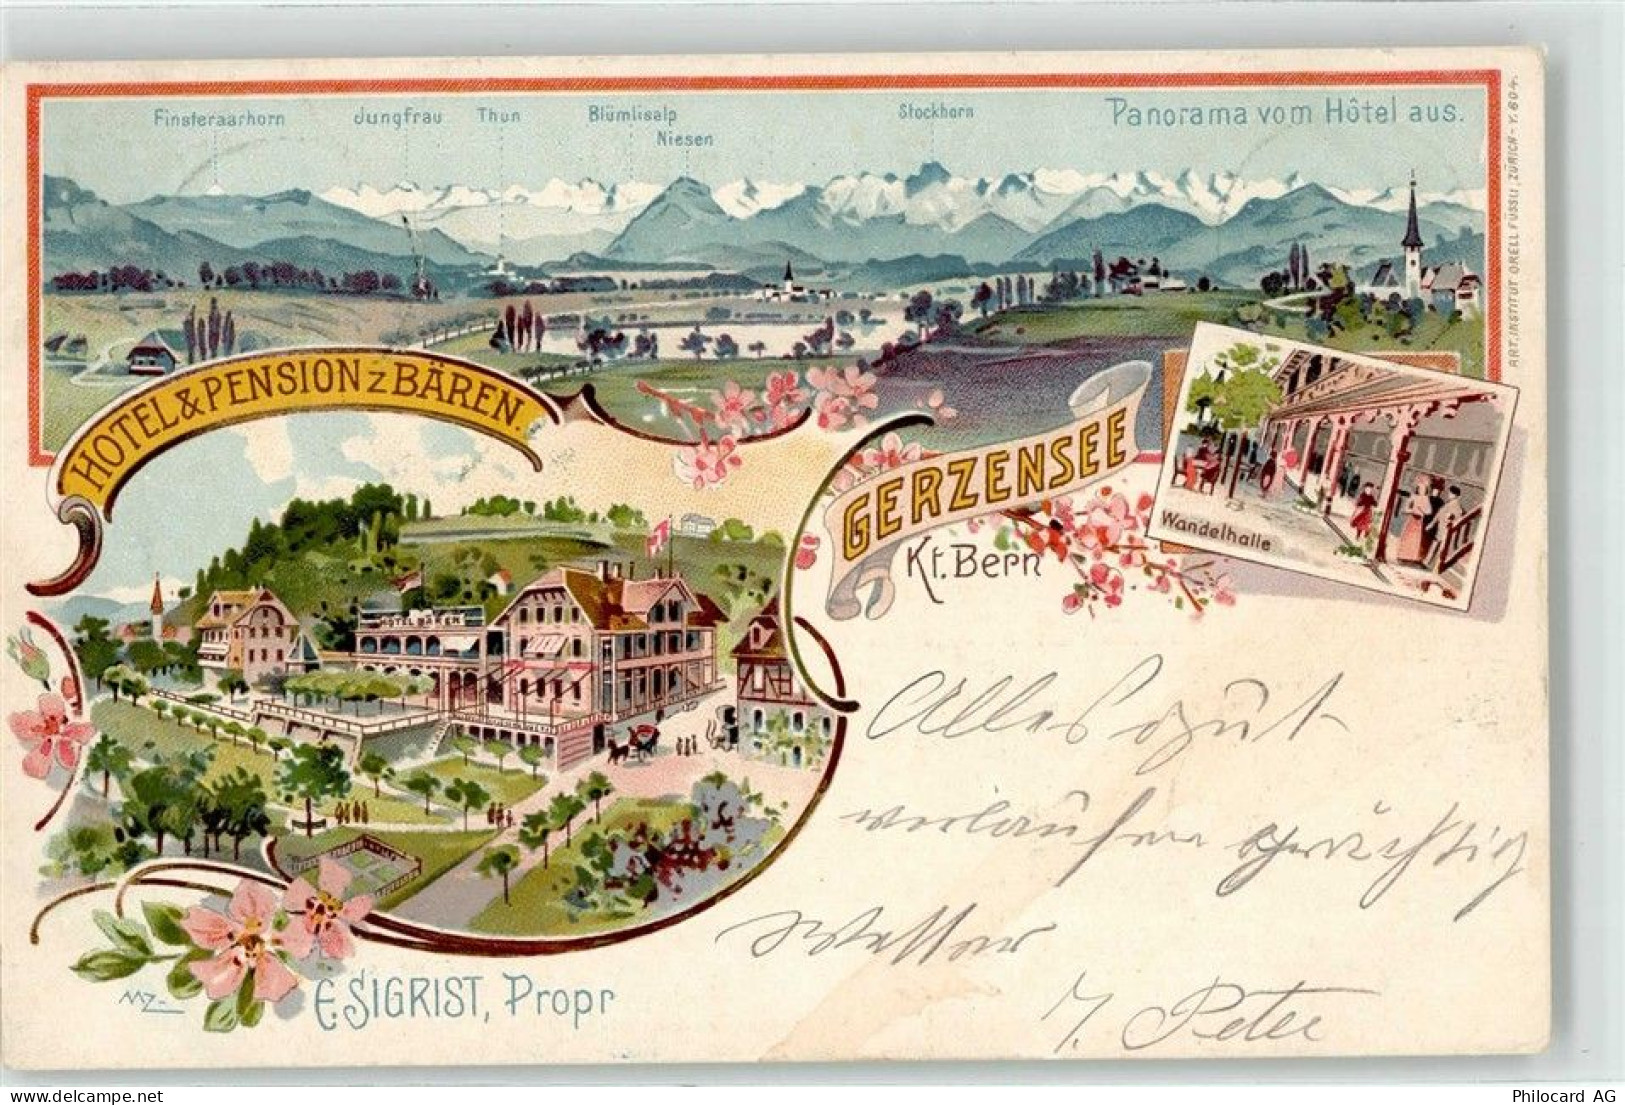 Finsteraarhorn Jungfrau Thun Blümlisalp Stockhorn Panorama vom Hôtel aus.
Niesen
ART. INSTITUT ORELL FÜSSLI, ZÜRICH - V. 604.
HOTEL & PENSION z BÄREN.
GERZENSEE
Kt. Bern
Wandelhalle
HOTEL BÄREN
Alles gut
verlaufen prächtig
Wetter
Peter
MZ
E. SIGRIST, Propr
Philocard AG